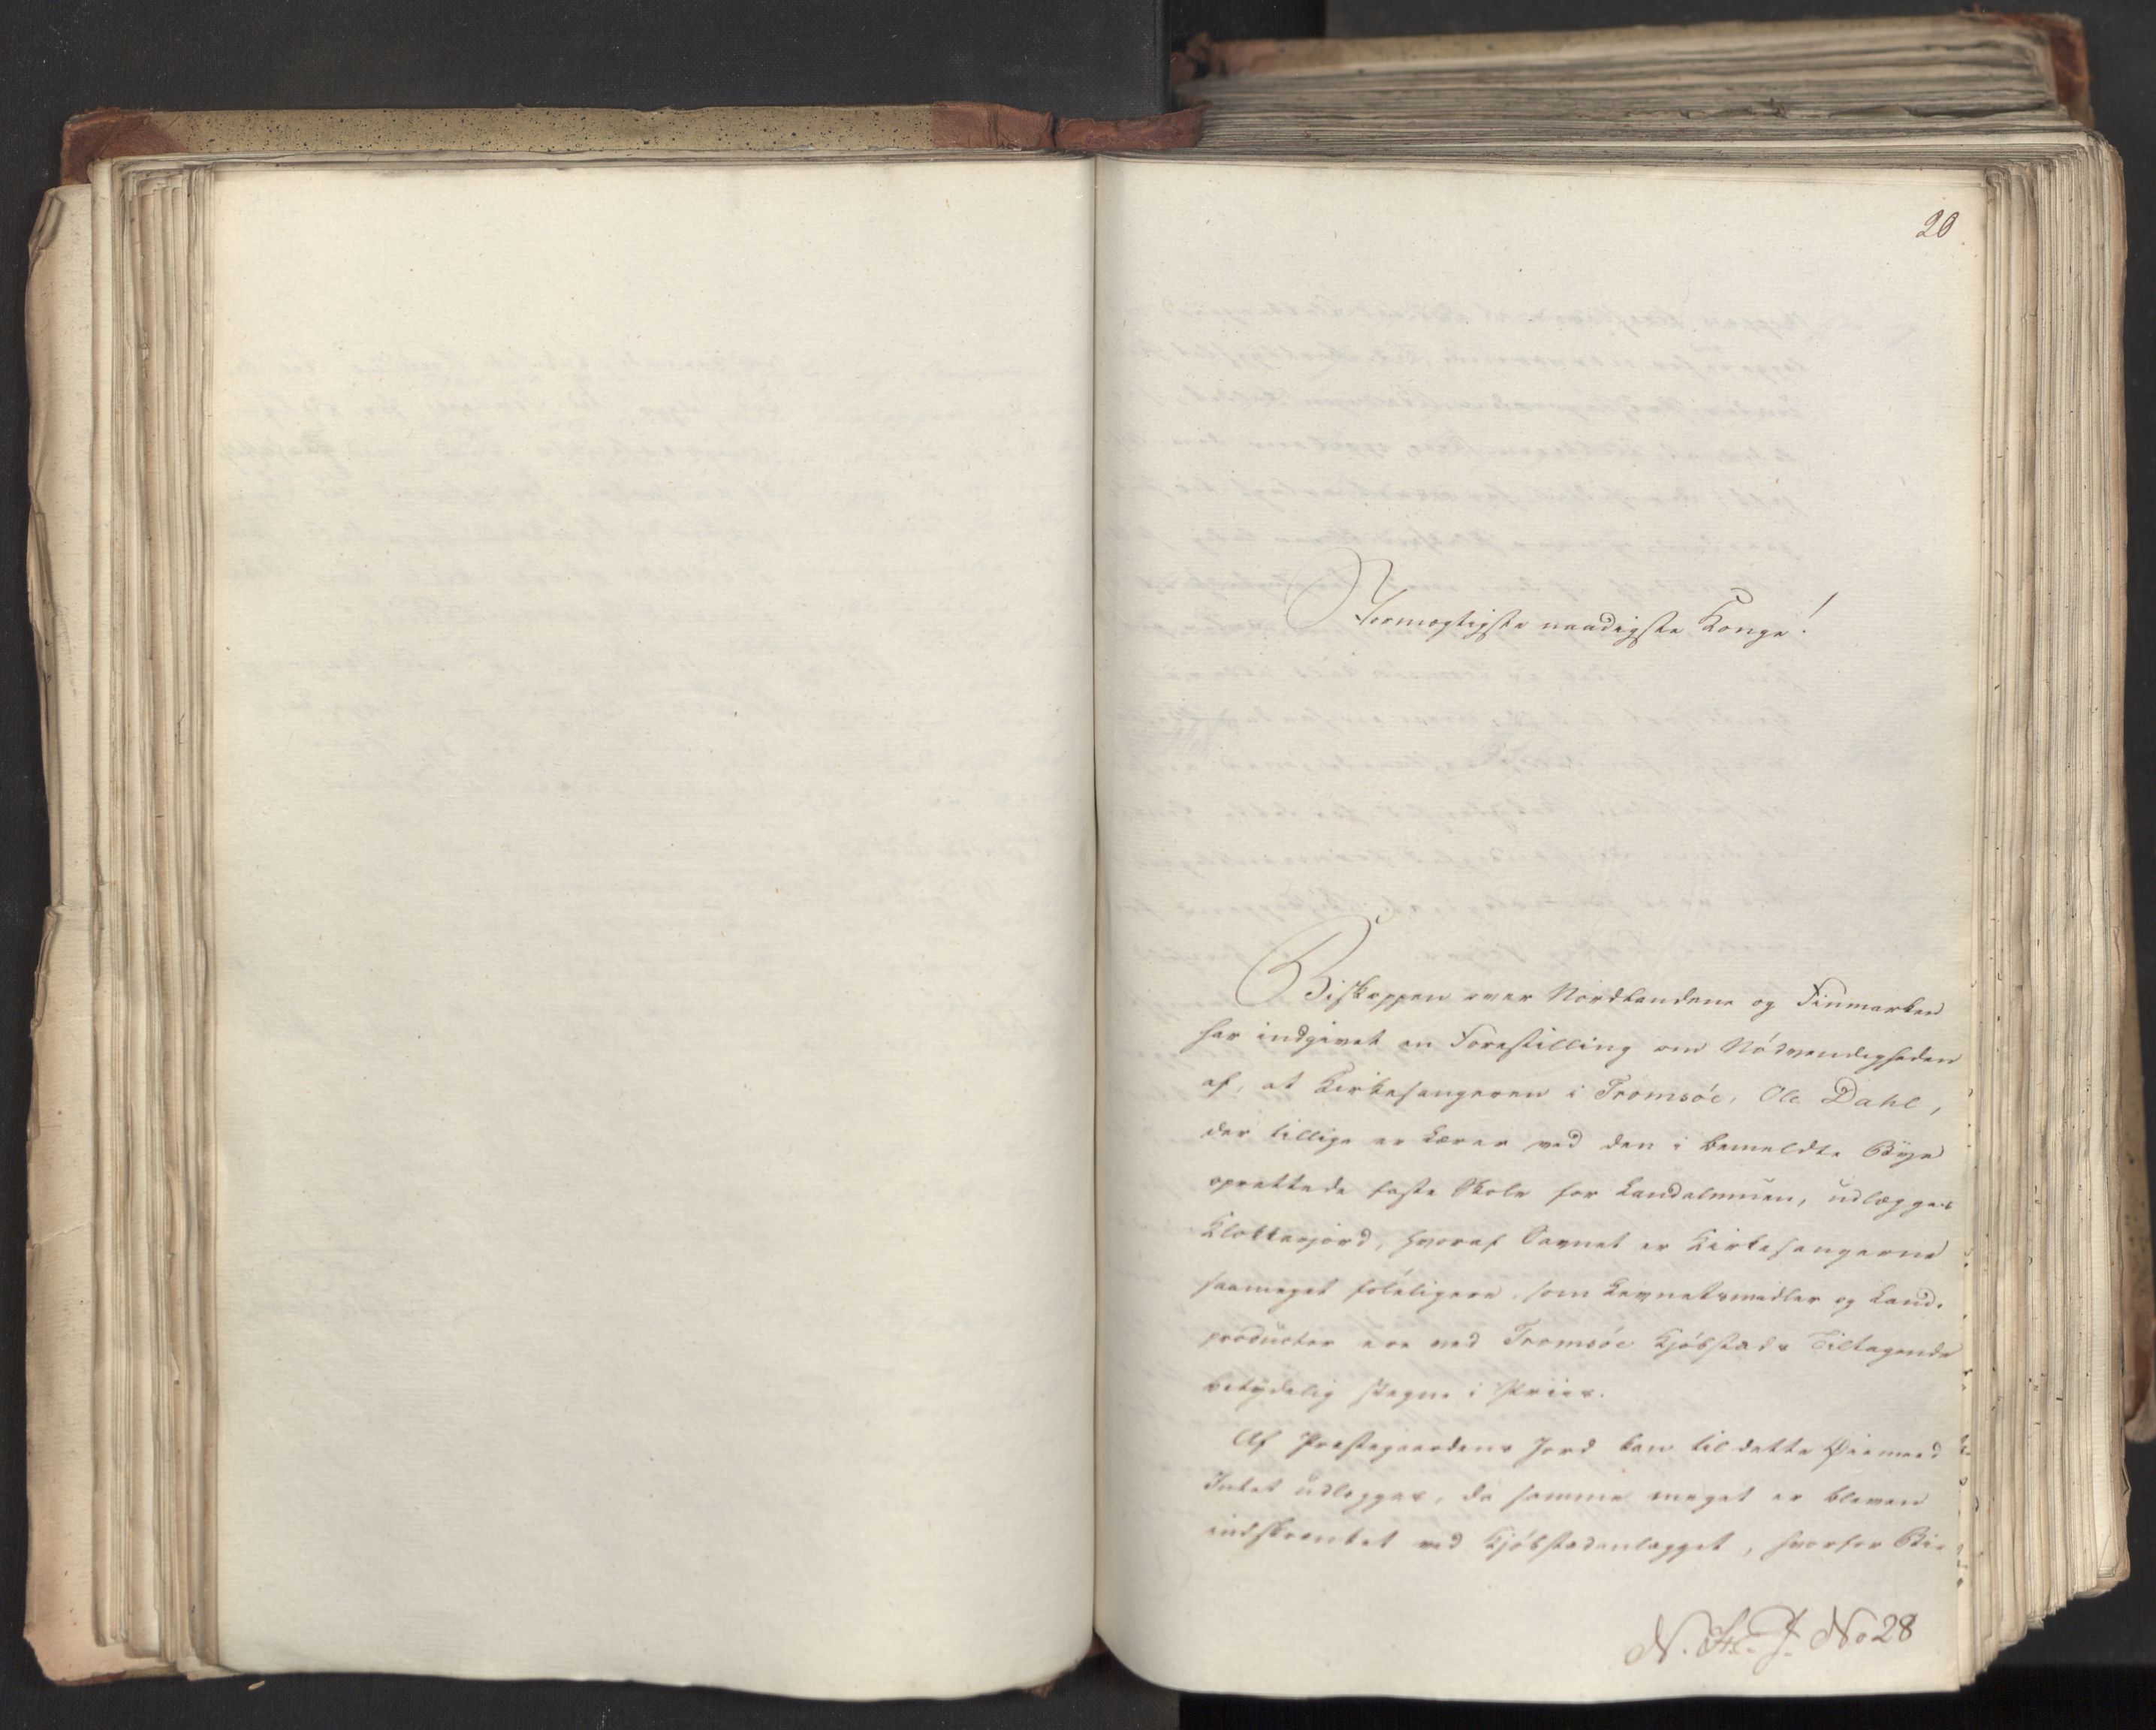 20
Stormægtigste naadigste Konge!
Biskoppen over Nordlandene og Finmarken
har indgivet en Forestilling om Nódvendigheden
af, at Kirkesangeren i Tromsóe, Ole Dahl,
der tillige er Lærer ved den i bemeldte Bÿe
oprettede faste Skole for Landalmuen, udlægges
Klokkerjord, hvoraf Savnet er Kirkesangerne
saameget fóleligere, som Levnetsmidler og Land-
producter ere ved Tromsóe Kjóbstads Tiltagende
betydelig stegne i Priis.
Af Præstegaardens Jord kan til dette Øiemeed
Intet udlægges, da samme meget er bleven
indskrænket ved Kjóbstadanlægget, hvorfor Bi-
No 28